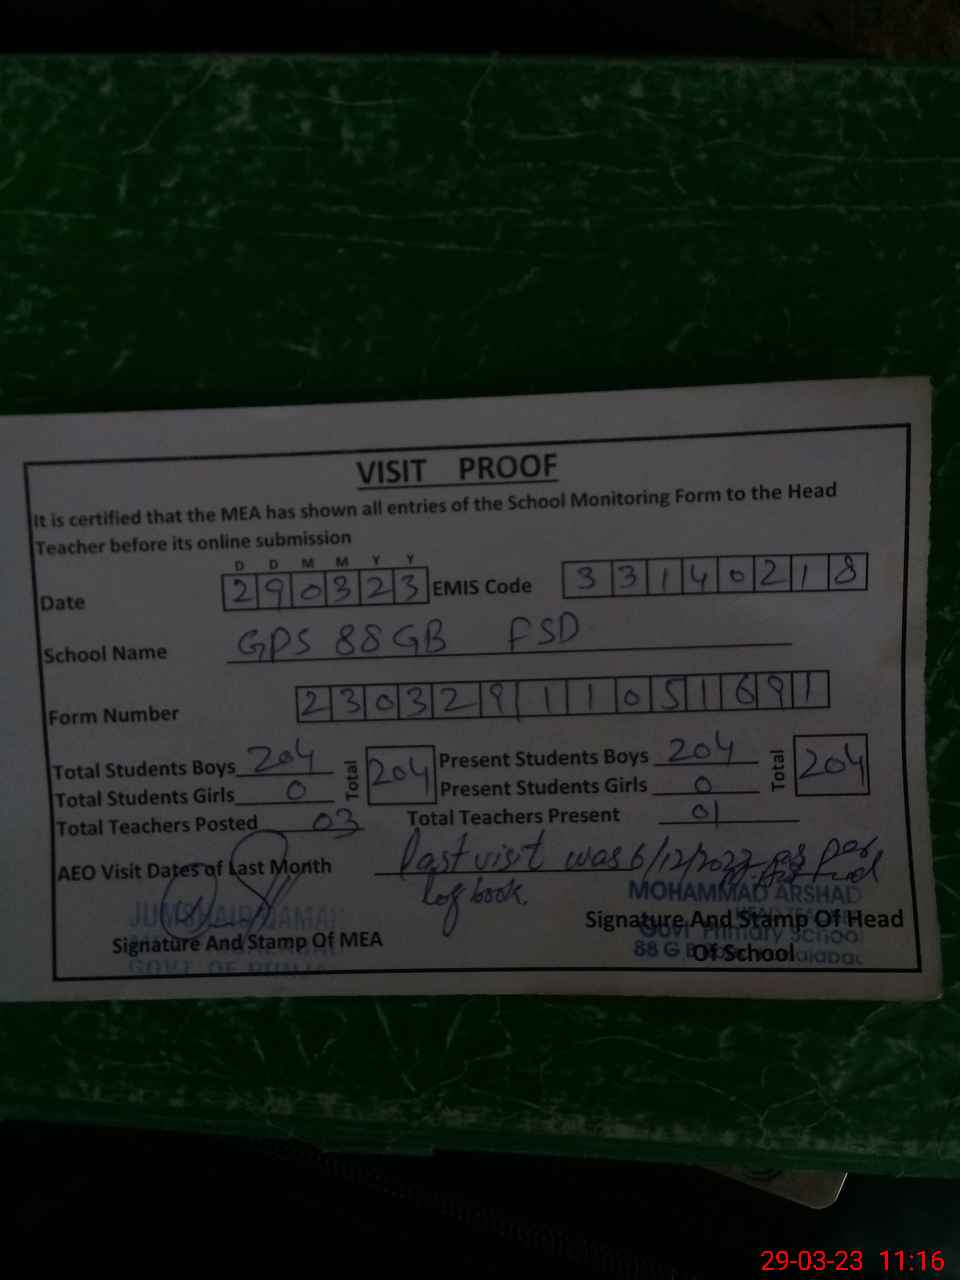 VISIT PROOF
It is certified that the MEA has shown all entries of the School Monitoring Form to the Head
Teacher before its online submission
D D M M Y Y
Date 290323 EMIS Code 33140218
School Name GPS 88 GB FSD
Form Number 23032911051691
Total Students Boys 204 Total 204 Present Students Boys 204 Total 204
Total Students Girls 0 Present Students Girls 0
Total Teachers Posted 03 Total Teachers Present 01
AEO Visit Dates of Last Month last visit was 6/12/2022 as per
log book.
MOHAMMAD ARSHAD
Signature And Stamp Of MEA
Signature And Stamp Of Head
Govt Primary School
88 G B
Of School
GOVT OF
29-03-23 11:16